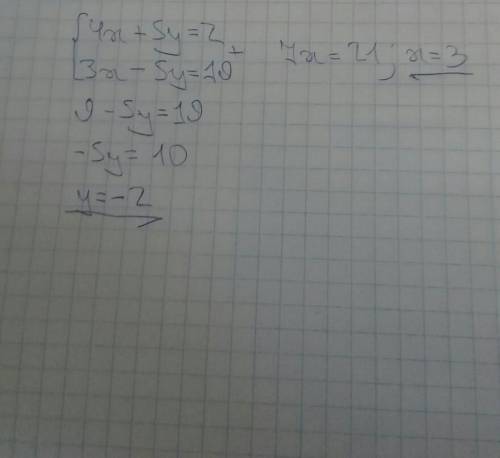 {4x + 5y = 2 +
{3x - 5y = 19
7x = 21; x = 3
9 - 5y = 19
-5y = 10
y = -2